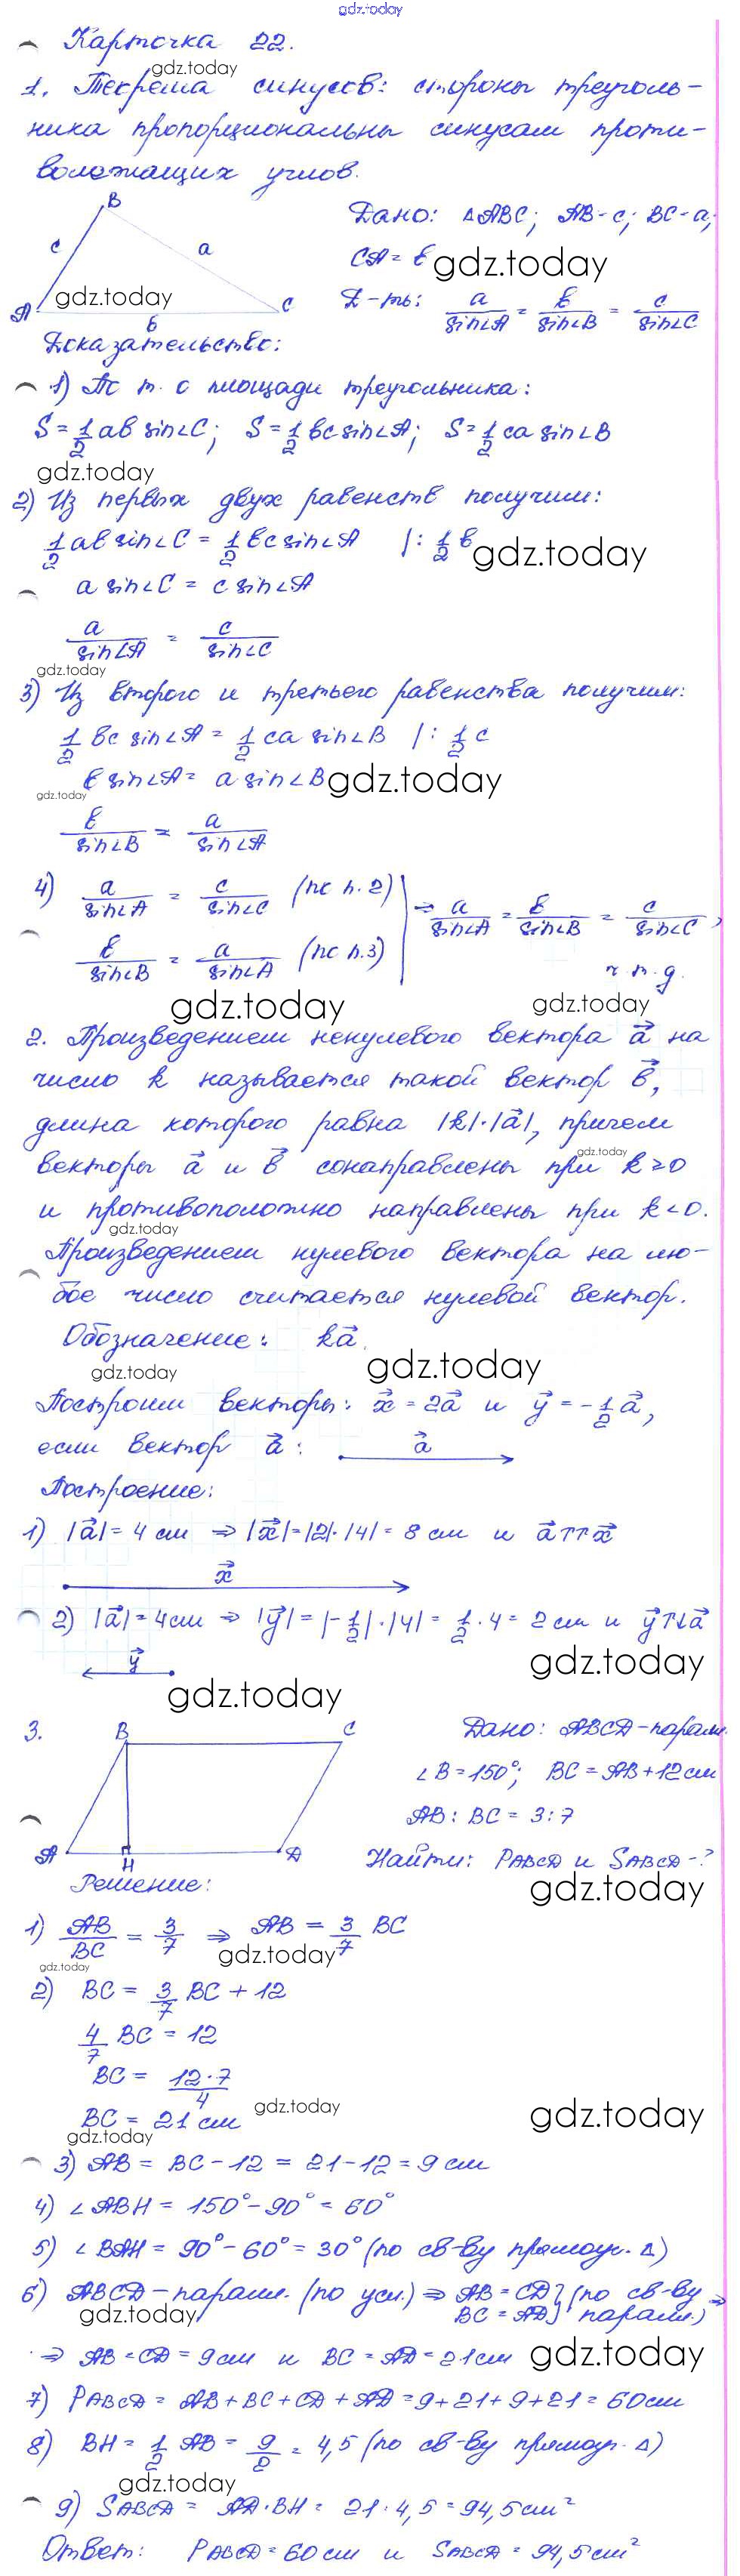 gdz.today
Карточка 22.
gdz.today
1. Теорема синусов: стороны треуголь-
ника пропорциональны синусам проти-
волежащих углов.
B
Дано: △ABC; AB-c; BC-a;
c a
CA = b gdz.today
gdz.today
A C
b
Д-ть: a/sin∠A = b/sin∠B = c/sin∠C
Доказательство:
1) По т. о площади треугольника:
S = 1/2 ab sin∠C; S = 1/2 bc sin∠A; S = 1/2 ca sin∠B
gdz.today
2) Из первых двух равенств получим:
1/2 ab sin∠C = 1/2 bc sin∠A |: 1/2 b
gdz.today
a sin∠C = c sin∠A
a/sin∠A = c/sin∠C
gdz.today
3) Из второго и третьего равенства получим:
1/2 bc sin∠A = 1/2 ca sin∠B |: 1/2 c
b sin∠A = a sin∠B gdz.today
gdz.today
b/sin∠B = a/sin∠A
4) a/sin∠A = c/sin∠C (по п.2)
b/sin∠B = a/sin∠A (по п.3)
⇒ a/sin∠A = b/sin∠B = c/sin∠C,
ч.т.д.
gdz.today gdz.today
2. Произведением ненулевого вектора a⃗ на
число k называется такой вектор b⃗,
длина которого равна |k|·|a⃗|, причем
gdz.today
векторы a⃗ и b⃗ сонаправлены при k ≥ 0
и противоположно направлены при k < 0.
gdz.today
Произведением нулевого вектора на лю-
бое число считается нулевой вектор.
Обозначение: ka⃗.
gdz.today gdz.today
Построим векторы: x⃗ = 2a⃗ и y⃗ = -1/2 a⃗,
если вектор a⃗: a⃗
Построение:
1) |a⃗| = 4 см ⇒ |x⃗| = |2|·|4| = 8 см и a⃗↑↑x⃗
x⃗
2) |a⃗| = 4 см ⇒ |y⃗| = |-1/2|·|4| = 1/2·4 = 2 см и y⃗↑↓a⃗
gdz.today
y⃗
gdz.today
3. B C
Дано: ABCD-парал.
∠B = 150°; BC = AB + 12 см
AB : BC = 3 : 7
A H D
Найти: PABCD и SABCD-?
Решение:
gdz.today
1) AB/BC = 3/7 ⇒ AB = 3/7 BC
gdz.today
gdz.today
2) BC = 3/7 BC + 12
4/7 BC = 12
BC = 12·7/4
BC = 21 см
gdz.today gdz.today
gdz.today
3) AB = BC - 12 = 21 - 12 = 9 см
4) ∠ABH = 150° - 90° = 60°
5) ∠BAH = 90° - 60° = 30° (по св-ву прямоуг. △)
6) ABCD-парал. (по усл.) ⇒ AB = CD } (по св-ву
BC = AD } парал.) ⇒
gdz.today
⇒ AB = CD = 9 см и BC = AD = 21 см gdz.today
7) PABCD = AB + BC + CD + AD = 9 + 21 + 9 + 21 = 60 см
8) BH = 1/2 AB = 9/2 = 4,5 (по св-ву прямоуг. △)
gdz.today
9) SABCD = AD·BH = 21·4,5 = 94,5 см²
Ответ: PABCD = 60 см и SABCD = 94,5 см²